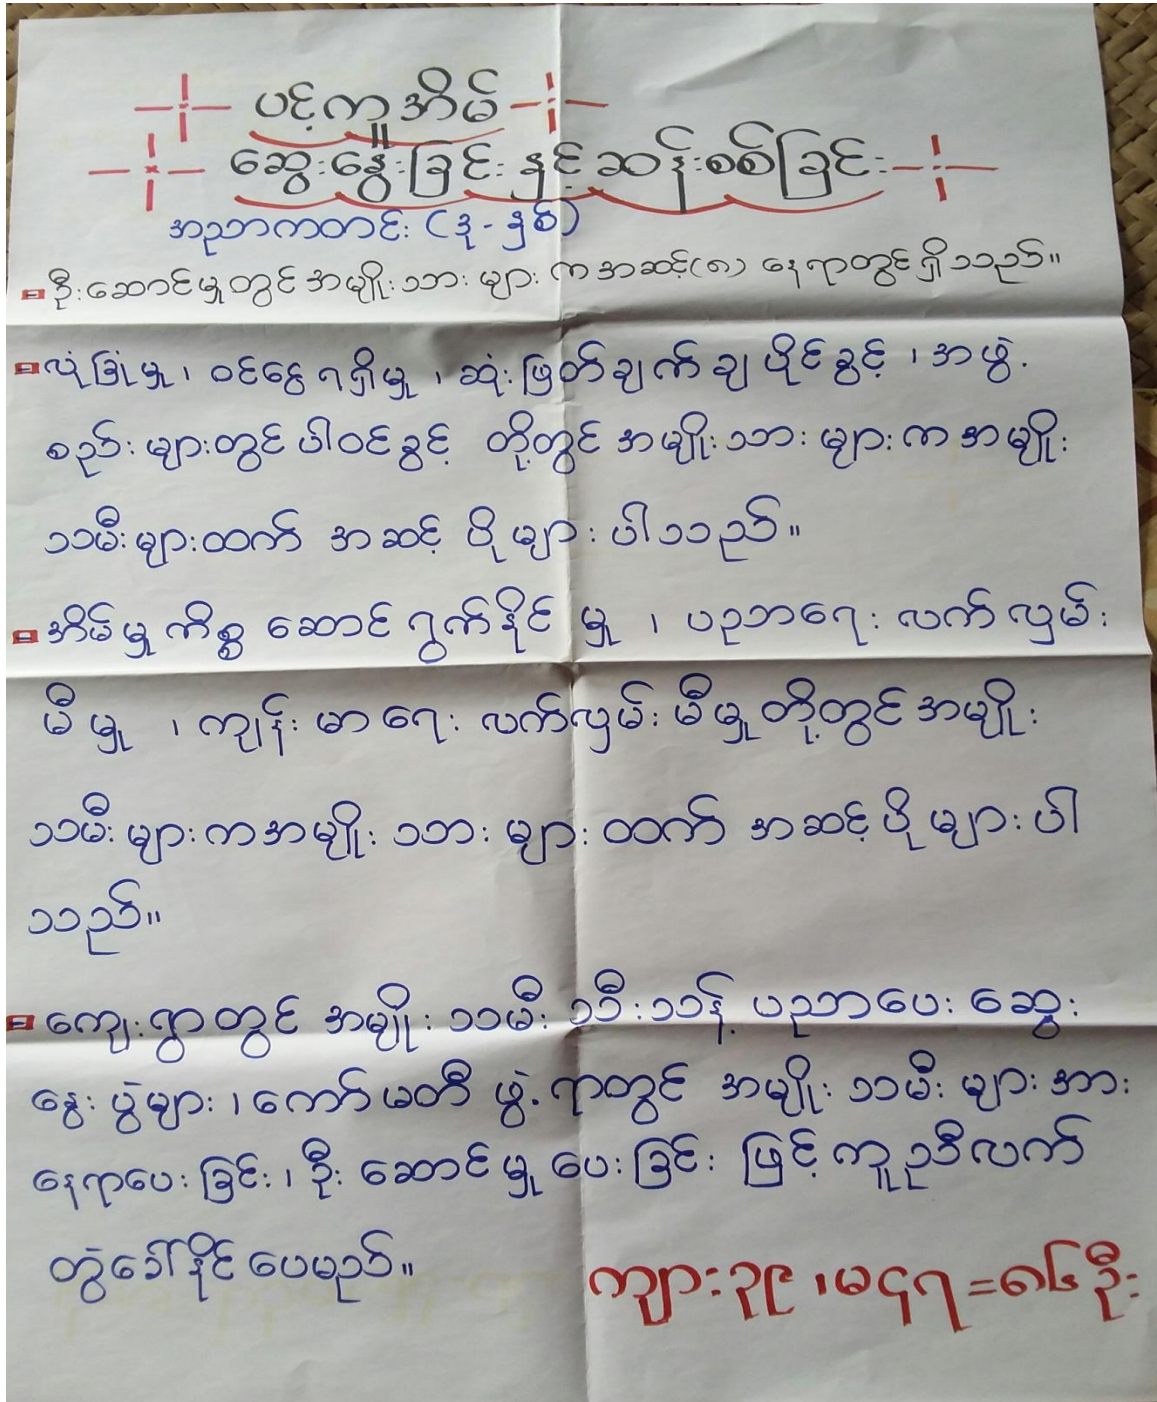 ပင့်ကူအိမ်
ဆွေးနွေးခြင်းနှင့်ဆန်းစစ်ခြင်း
အညာကတင်း (ဒု-နှစ်)
ဦးဆောင်မှုတွင်အမျိုးသားများကအဆင့်(၈)နေရာတွင်ရှိသည်။
လုံခြုံမှု၊ ဝင်ငွေရရှိမှု၊ ဆုံးဖြတ်ချက်ချပိုင်ခွင့်၊ အဖွဲ့
စည်းများတွင်ပါဝင်ခွင့် တို့တွင်အမျိုးသားများကအမျိုး
သမီးများထက် အဆင့်ပိုများပါသည်။
အိမ်မှုကိစ္စ ဆောင်ရွက်နိုင်မှု၊ ပညာရေးလက်လှမ်း
မီမှု၊ ကျန်းမာရေးလက်လှမ်းမီမှုတို့တွင်အမျိုး
သမီးများကအမျိုးသားများထက် အဆင့်ပိုများပါ
သည်။
ကျေးရွာတွင် အမျိုးသမီးသီးသန့် ပညာပေးဆွေး
နွေးပွဲများ၊ ကော်မတီဖွဲ့ရာတွင် အမျိုးသမီးများအား
နေရာပေးခြင်း၊ ဦးဆောင်မှုပေးခြင်းဖြင့်ကူညီလက်
တွဲခေါ်နိုင်ပေမည်။
ကျား၃၉၊မ၄၇=၈၆ဦး